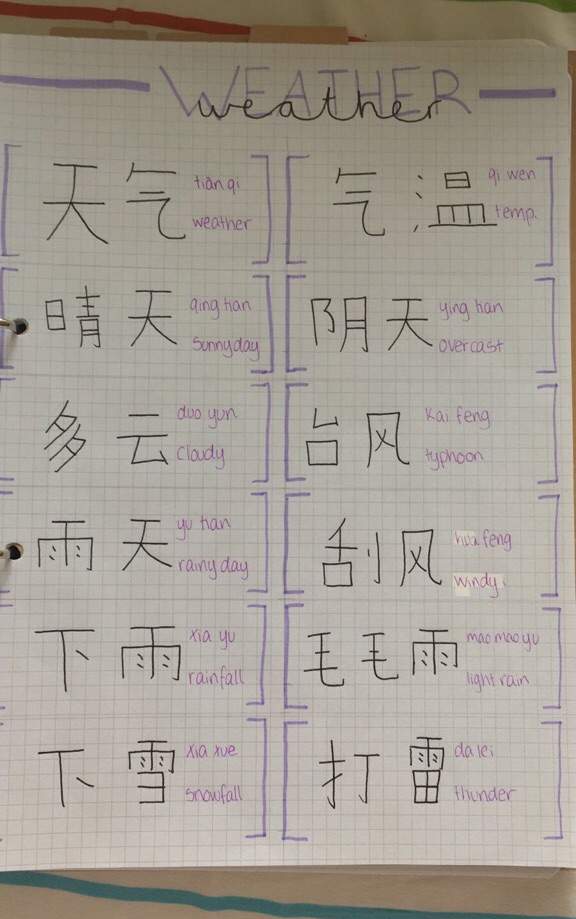 WEATHER
weather
天气
tian qi
weather
气温
qi wen
temp.
晴天
qing tian
sunnyday
阴天
ying tian
overcast
多云
duo yun
cloudy
台风
Kai feng
typhoon
雨天
yu tian
rainy day
刮风
hua feng
windy
下雨
xia yu
rainfall
毛毛雨
maomaoyu
light rain
下雪
xia xue
snowfall
打雷
da lei
thunder